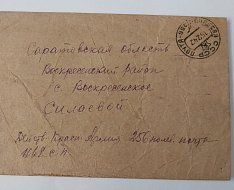 Саратовская область
Воскресенский район
с. Воскресенское
Силаевой
Действ. Красн Армия 256 полев. почта
СССР